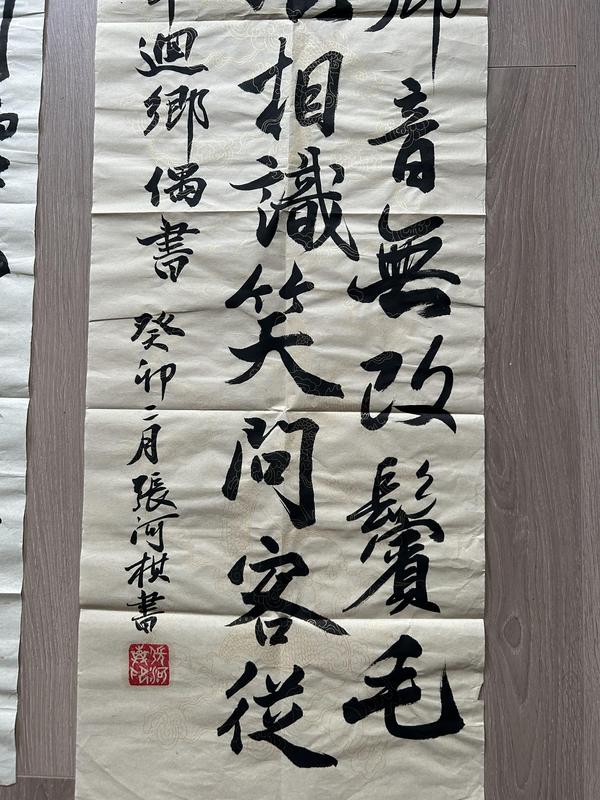 音無改鬢毛
相識笑問客從
迴鄉偶書 癸卯二月張河棋書